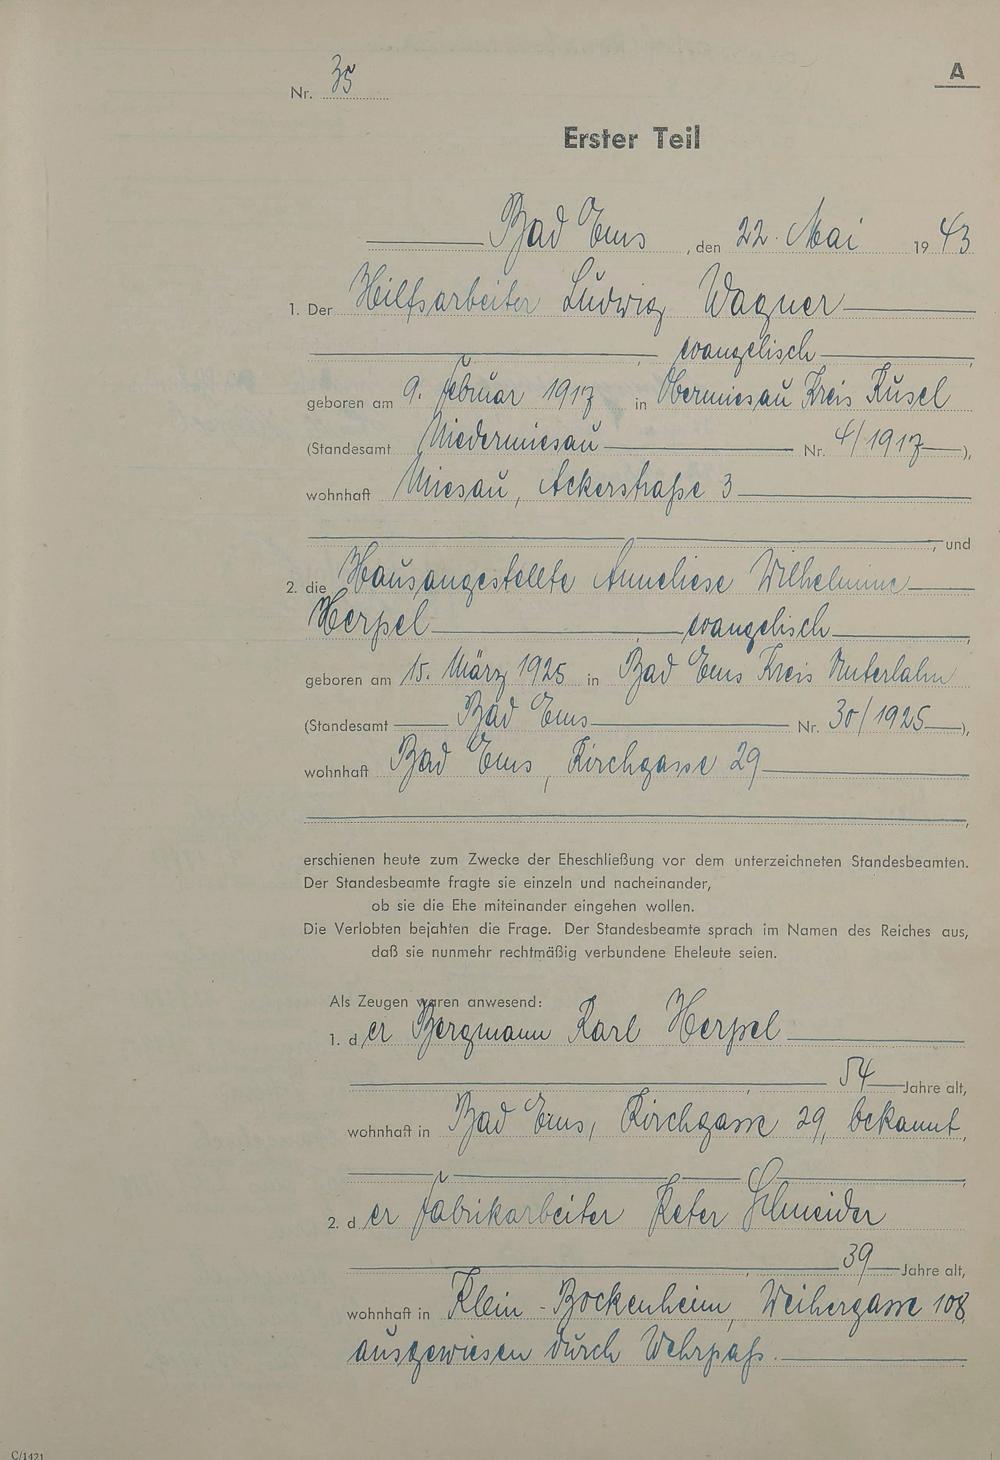 Nr. 35
A
Erster Teil
Bad Ems, den 22. Mai 1943
1. Der Hilfsarbeiter Ludwig Wagner
, evangelisch,
geboren am 9. Februar 1917 in Obermiesau Kreis Kusel
(Standesamt Niedermiesau Nr. 4/1917),
wohnhaft Miesau, Ackerstraße 3
, und
2. die Hausangestellte Anneliese Wilhelmine
Herpel, evangelisch,
geboren am 15. März 1925 in Bad Ems Kreis Unterlahn
(Standesamt Bad Ems Nr. 30/1925),
wohnhaft Bad Ems, Kirchgasse 29
,
erschienen heute zum Zwecke der Eheschließung vor dem unterzeichneten Standesbeamten.
Der Standesbeamte fragte sie einzeln und nacheinander,
ob sie die Ehe miteinander eingehen wollen.
Die Verlobten bejahten die Frage. Der Standesbeamte sprach im Namen des Reiches aus,
daß sie nunmehr rechtmäßig verbundene Eheleute seien.
Als Zeugen waren anwesend:
1. der Bergmann Karl Herpel
, 54 Jahre alt,
wohnhaft in Bad Ems, Kirchgasse 29, bekannt,
;
2. der Fabrikarbeiter Peter Schneider
, 39 Jahre alt,
wohnhaft in Klein-Bockenheim, Weihergasse 108,
ausgewiesen durch Wehrpaß.
C/1421